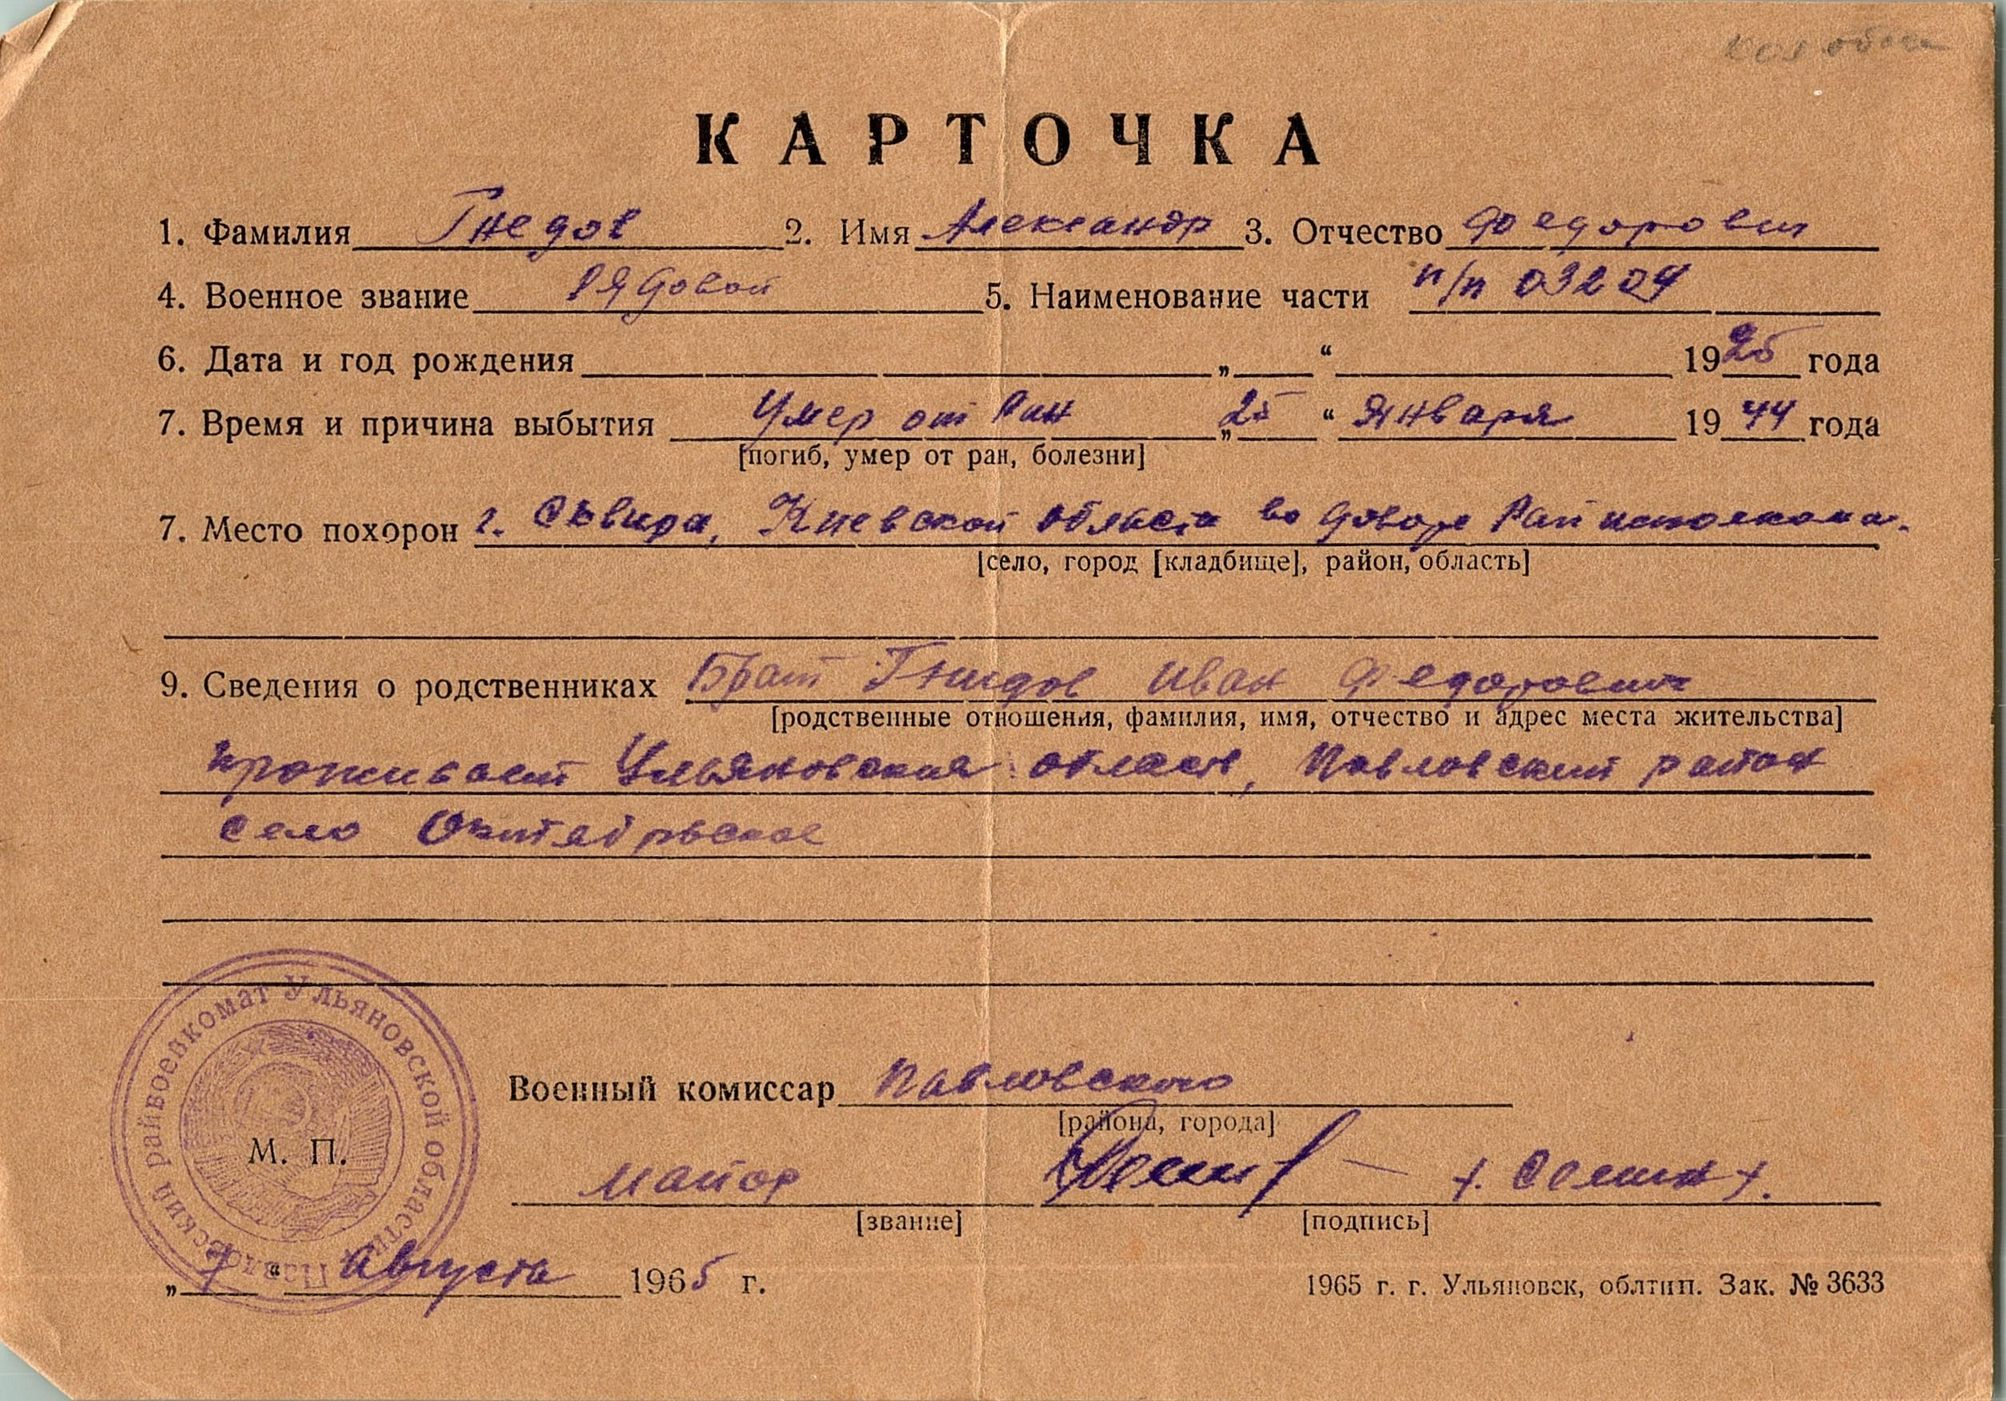 КАРТОЧКА
1. Фамилия Гнедов 2. Имя Александр 3. Отчество Федорович
4. Военное звание Рядовой 5. Наименование части п/п 03204
6. Дата и год рождения „ “ 1925 года
7. Время и причина выбытия Умер от Ран „25“ Января 1944 года
[погиб, умер от ран, болезни]
7. Место похорон г. Сквира, Киевской области во дворе Райисполкома.
[село, город [кладбище], район, область]
9. Сведения о родственниках Брат Гнедов Иван Федорович
[родственные отношения, фамилия, имя, отчество и адрес места жительства]
проживает Ульяновская область, Павловский район
село Октябрьское
Павловский райвоенкомат Ульяновской области
М. П.
Военный комиссар Павловского
[района, города]
майор
[звание] [подпись]
„7“ Августа 1965 г.
1965 г. г. Ульяновск, облтип. Зак. № 3633